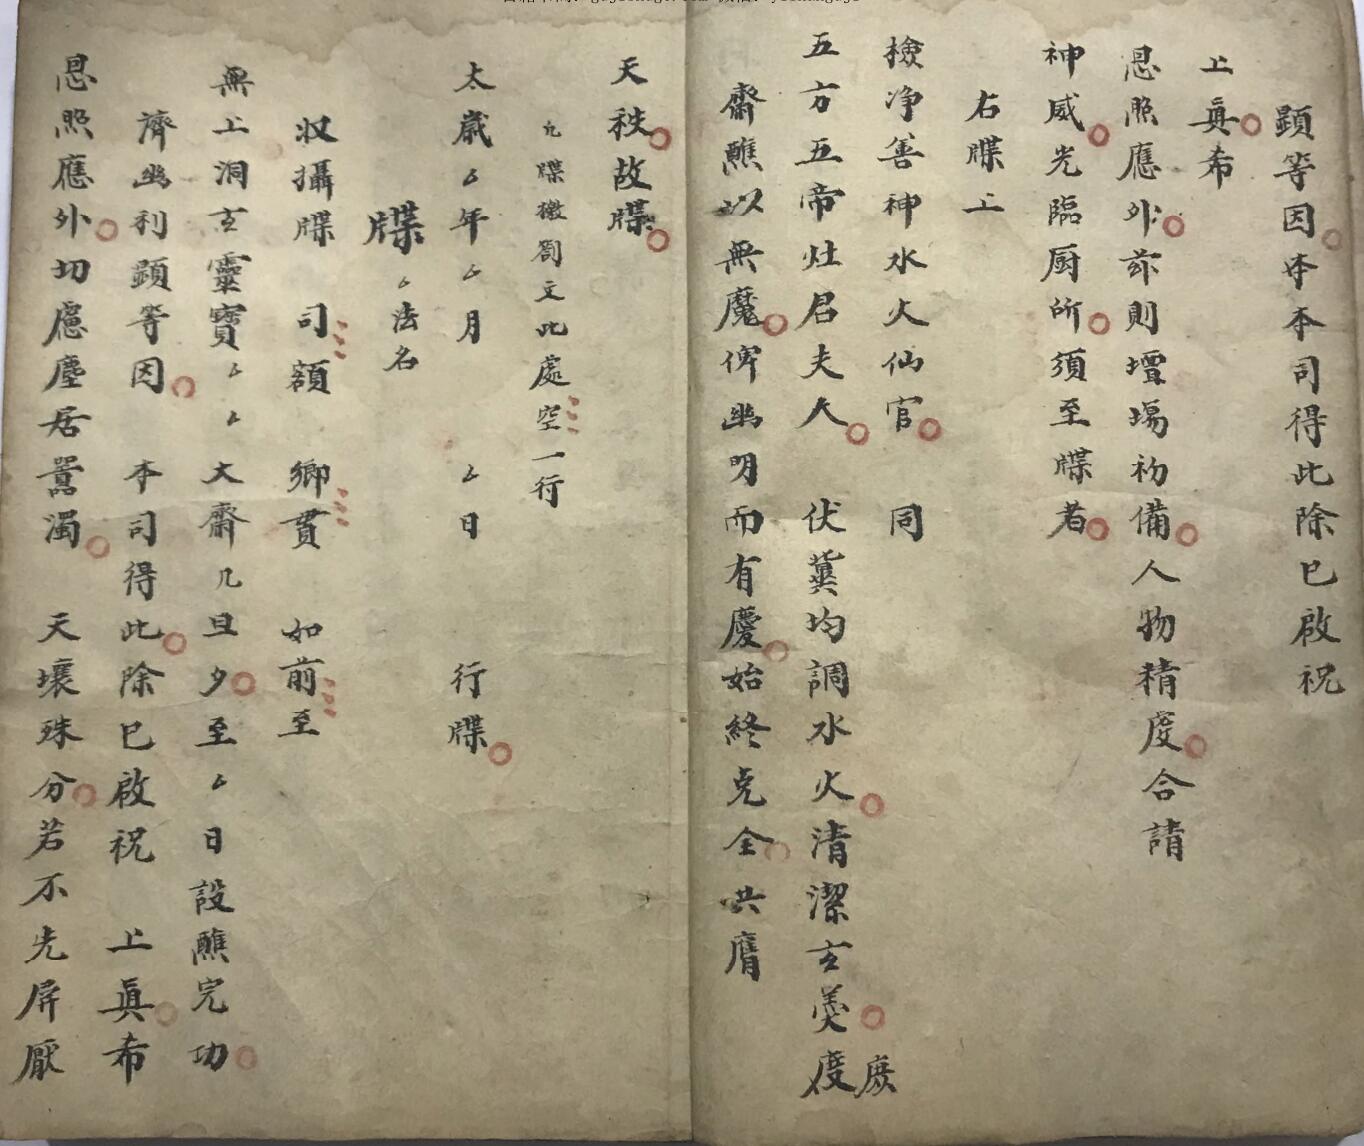 顕等因本本司得此除已啟祝
上真希
恩照應外茲則壇場初備人物精虔合請
神威光臨厨所須至牒者
右牒上
檢净善神水火仙官 同
五方五帝灶君夫人 伏蓂均調水火清潔玄羮度庻
齋醮以無魔俾幽明而有慶始終克全共膺
天秩故牒
九牒檄劄文此處空一行
太歲厶年厶月 厶日 行牒
牒厶法名
収攝牒 司額 鄉貫 如前至
無上洞玄靈寶厶厶大齋几旦夕至厶日設醮完功
濟幽利顕等因 本司得此除已啟祝 上真希
恩照應外切慮塵居嚣濁 天壤殊分若不先屏厭